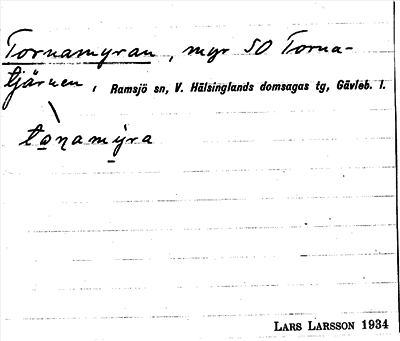 Tornamyran, myr SO Torna-
tjärnen, Ramsjö sn, V. Hälsinglands domsagas tg, Gävleb. l.
tòṇamy̠ra
LARS LARSSON 1934